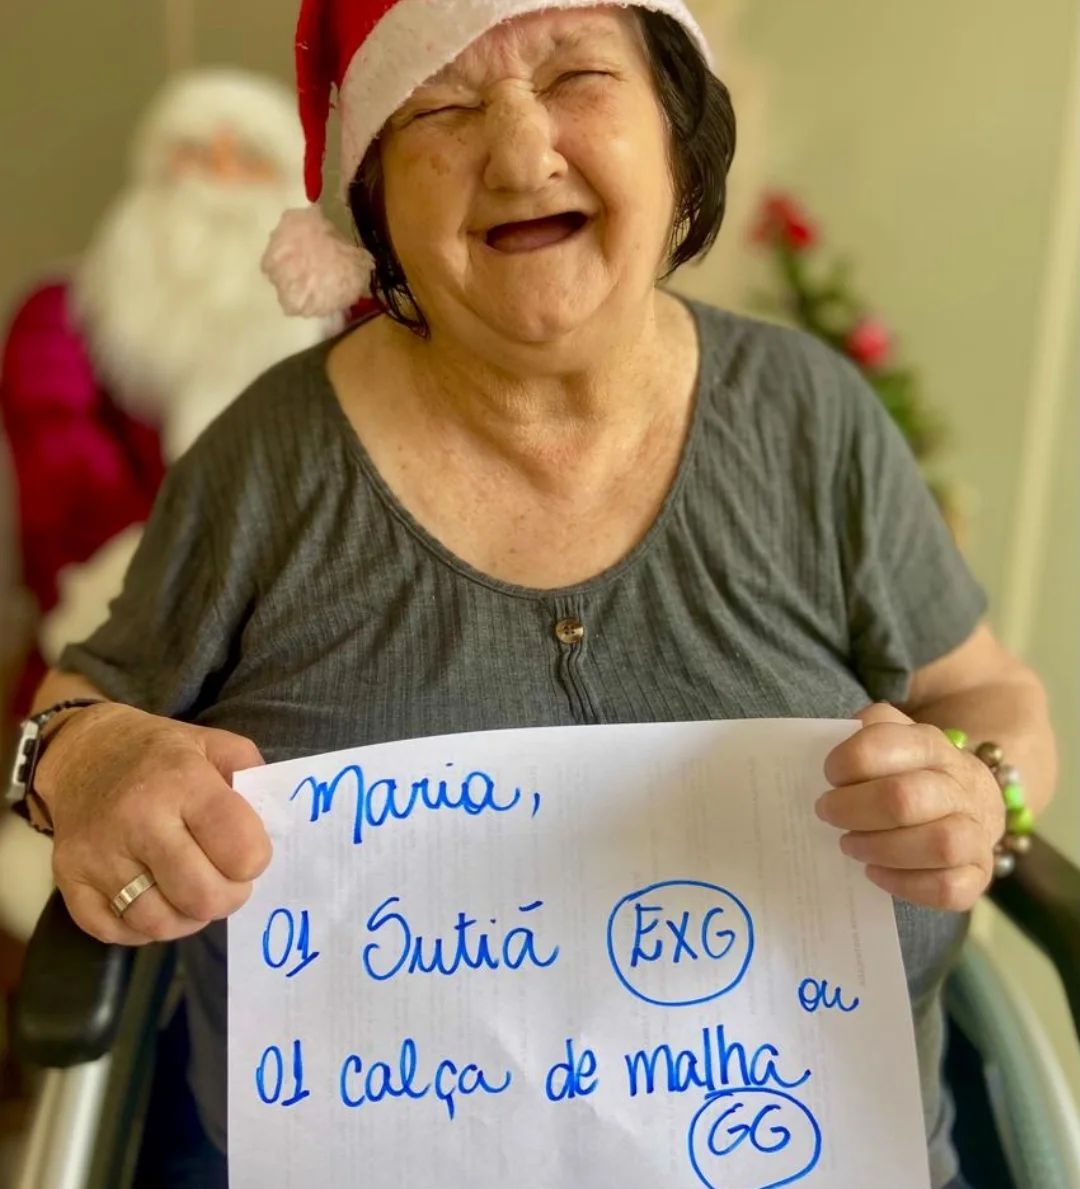 Maria,
01 Sutiã EXG
ou
01 calça de malha
GG